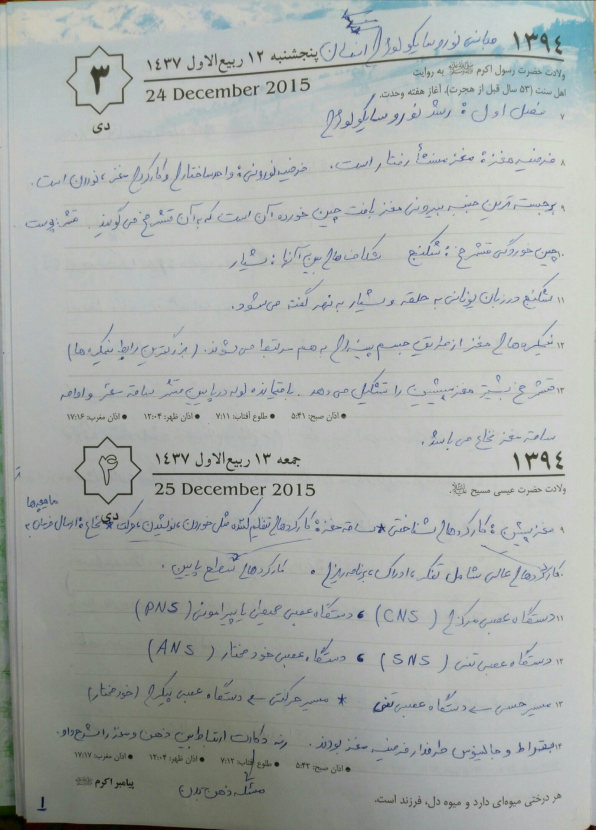 مبانی نوروسایکولوژی انسان
۱۳۹۴
پنجشنبه ۱۲ ربیع‌الاول ۱۴۳۷
24 December 2015
۳
دی
ولادت حضرت رسول اکرم ﷺ به روایت
اهل سنت (۵۳ سال قبل از هجرت). آغاز هفته وحدت.
۷ فصل اول: رشد نوروسایکولوژی
۸ فرضیه مغز: مغز منشأ رفتار است. فرضیه نورونی: واحد ساختاری و کارکردی مغز، نورون است.
۹ برجسته ترین جنبه بیرونی مغز بافت چین خورده آن است که به آن قشر مخ می گویند. قشر: پوست
۱۰ چین خوردگی قشر مخ: شکنج شکاف های بین آنها: شیار
۱۱ شکنج در زبان یونانی به حلقه و شیار به نهر گفته می شود.
۱۲ نیمکره های مغز از طریق جسم پینه ای به هم مرتبط می شوند. (بزرگترین رابط نیمکره ها)
۱۳ قشر مخ بیشتر مغز پیشین را تشکیل می دهد. باقیمانده لوله در پایین قشر ساقه مغز و ادامه
● اذان صبح: ۵:۴۱ ● طلوع آفتاب: ۷:۱۱ ● اذان ظهر: ۱۲:۰۴ ● اذان مغرب: ۱۷:۱۶
ساقه مغز نخاع می باشد.
۱۳۹۴
جمعه ۱۳ ربیع‌الاول ۱۴۳۷
25 December 2015
۴
دی
ولادت حضرت عیسی مسیح
ماهیچه ها
۹ مغز پیشین: کارکردهای شناختی * ساقه مغز: کارکردهای تنظیم کننده مثل خوردن، نوشیدن، حرکت * نخاع: ارسال فرمان به
۱۰ کارکردهای عالی شامل تفکر، ادراک، برنامه ریزی. کارکردهای سطح پایین.
۱۱ دستگاه عصبی مرکزی (CNS) ، دستگاه عصبی محیطی یا پیرامونی (PNS)
۱۲ دستگاه عصبی تنی (SNS) ، دستگاه عصبی خودمختار (ANS)
۱۳ مسیر حسی دستگاه عصبی تنی * مسیر حرکتی دستگاه عصبی پیکری (خودمختار)
۱۴ بقراط و جالینوس طرفدار فرضیه مغز بودند. رنه دکارت ارتباط بین ذهن و مغز را شرح داد.
● اذان صبح: ۵:۴۲ ● طلوع آفتاب: ۷:۱۲ ● اذان ظهر: ۱۲:۰۴ ● اذان مغرب: ۱۷:۱۷
مسئله ذهن بدن
پیامبر اکرم ﷺ
هر درختی میوه‌ای دارد و میوه دل، فرزند است.
1